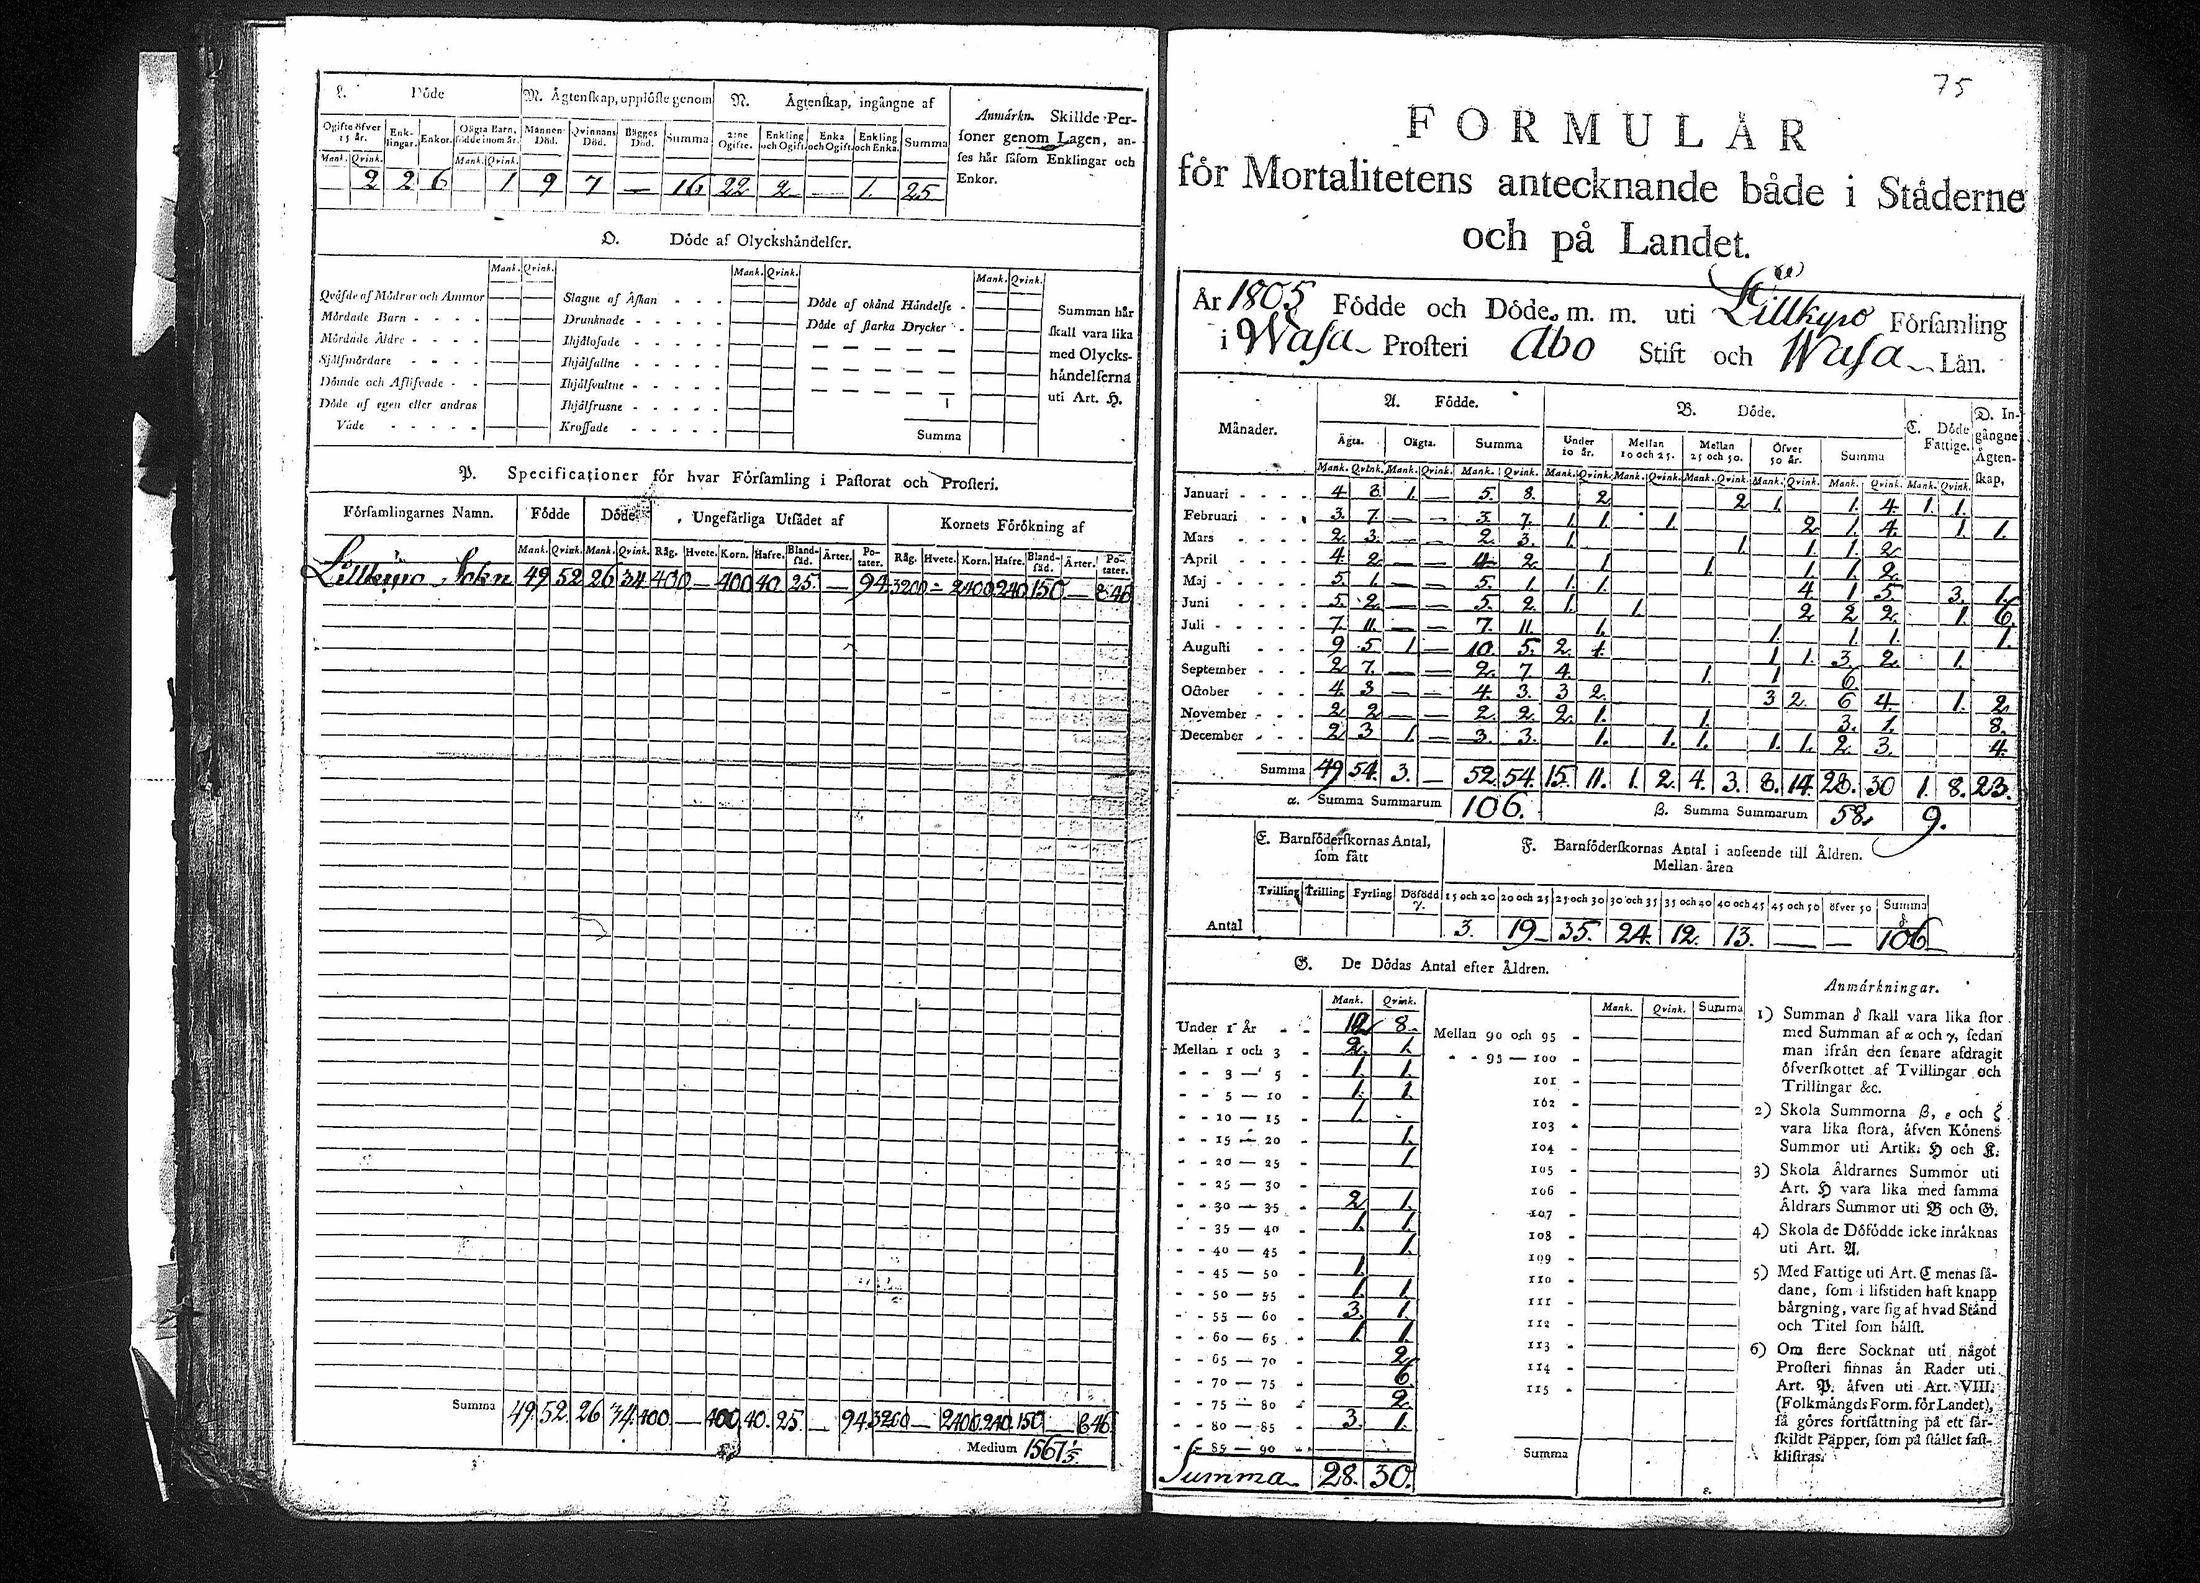 L. Döde
M. Ägtenskap, upplöste genom
N. Ägtenskap, ingångne af
Anmärkn. Skillde Personer genom Lagen, anses här såsom Enklingar och Enkor.
Ogifte öfver 15 år. Enklingar. Enkor. Oägta Barn, födde inom år. Mannens Död. Qvinnans Död. Bägges Död. Summa 2:ne Ogifte. Enkling och Ogift. Enka och Ogift. Enkling och Enka. Summa
Mank. Qvink. Mank. Qvink.
— 2 2 6 1 9 7 — 16 22 2 — 1. 25
O. Döde af Olyckshändelser.
Mank. Qvink. Mank. Qvink. Mank. Qvink.
Qväfde af Mödrar och Ammor
Mördade Barn
Mördade Äldre
Sjelfmördare
Dömde och Aflifvade
Döde af egen eller andras
Våde
Slagne af Åskan
Drunknade
Ihjälosade
Ihjälfallne
Ihjälsvultne
Ihjälfrusne
Krossade
Döde af okänd Händelse
Döde af starka Drycker
Summa
Summan här
skall vara lika
med Olycks-
händelserna
uti Art. H.
P. Specificationer för hvar Församling i Pastorat och Prosteri.
Församlingarnes Namn. Födde Döde Ungefärliga Utsädet af Kornets Förökning af
Mank. Qvink. Mank. Qvink. Råg. Hvete. Korn. Hafre. Blandsäd. Ärter. Potater. Råg. Hvete. Korn. Hafre. Blandsäd. Ärter. Potater.
Lillkyro Sokn 49 52 26 34 400 — 400 40. 25. — 94 3200 — 2400 240 150 — 846
Summa 49. 52. 26 34. 400. — 400. 40. 25. — 94 3200 — 2400. 240. 150 — 846.
Medium 1567 1/5
75
FORMULÄR
för Mortalitetens antecknande både i Städerne
och på Landet.
År 1805 Födde och Döde m. m. uti Lillkyro Församling
i Wasa Prosteri Abo Stift och Wasa Län.
Månader. A. Födde. B. Döde. C. Döde Fattige. D. Ingångne Ägtenskap,
Ägta. Oägta. Summa Under 10 år. Mellan 10 och 25. Mellan 25 och 50. Öfver 50 år. Summa
Mank. Qvink. Mank. Qvink. Mank. Qvink. Mank. Qvink. Mank. Qvink. Mank. Qvink. Mank. Qvink. Mank. Qvink. Mank. Qvink.
Januari 4 8 1. — 5. 8. 2 2 1. 1. 4 1. 1.
Februari 3. 7. — — 3. 7. 1. 1. 1. 2 1. 4. 1. 1.
Mars 2 3. — — 2. 3. 1. 1. 1. 1. 2
April 4 2 — — 4. 2. 1 1. 1. 1. 2
Maj 5. 1. — — 5. 1. 1. 1. 4 1 5. 3. 1.
Juni 5. 2 — — 5. 2. 1. 1. 2 2 2. 1. 6.
Juli 7. 11. — — 7. 11. 1. 1. 1. 1. 1.
Augusti 9 5 1 — 10. 5. 2. 1. 1. 1. 3. 2. 1.
September 2 7. — — 2. 7 4. 1. 1 6
October 4. 3 — — 4. 3. 3 2. 3 2. 6 4. 1. 2.
November 2 2 — — 2. 2. 2. 1. 1. 3. 1. 8.
December 2 3 1. — 3. 3. 1. 1. 1. 1. 1. 2. 3. 4.
Summa 49 54. 3. — 52. 54. 15. 11. 1. 2. 4. 3. 8. 14. 28. 30 1. 8. 23.
α. Summa Summarum 106. β. Summa Summarum 58. 9.
E. Barnföderskornas Antal, som fått
F. Barnföderskornas Antal i anseende till Åldren.
Mellan åren
Tvilling Trilling Fyrling Döfödd γ. 15 och 20 20 och 25 25 och 30 30 och 35 35 och 40 40 och 45 45 och 50 öfver 50 Summa δ.
Antal 3. 19 35. 24. 12. 13. — — 106
G. De Dödas Antal efter Åldren.
Mank. Qvink. Mank. Qvink. Summa
Under 1 År 12 8.
Mellan 1 och 3 2. 1.
3 — 5 1. 1.
5 — 10 1. 1.
10 — 15 1.
15 — 20 1.
20 — 25 1.
25 — 30
30 — 35 2 1.
35 — 40 1. 1.
40 — 45 1.
45 — 50 1.
50 — 55 1. 1.
55 — 60 3. 1.
60 — 65 1. 1.
65 — 70 2
70 — 75 6.
75 — 80 2.
80 — 85 3. 1.
85 — 90
Summa 28. 30.
Mellan 90 och 95
95 — 100
101
102
103
104
105
106
107
108
109
110
111
112
113
114
115
Summa
ε.
Anmärkningar.
1) Summan δ skall vara lika stor
med Summan af α och γ, sedan
man ifrån den senare afdragit
öfverskottet af Tvillingar och
Trillingar &c.
2) Skola Summorna β, ε och ζ
vara lika stora, äfven Könens
Summor uti Artik. H och K.
3) Skola Åldrarnes Summor uti
Art. H vara lika med samma
Åldrars Summor uti B och G.
4) Skola de Döfödde icke inräknas
uti Art. A.
5) Med Fattige uti Art. C menas så-
dane, som i lifstiden haft knapp
bärgning, vare sig af hvad Stånd
och Titel som hälst.
6) Om flere Socknar uti något
Prosteri finnas än Rader uti
Art. P. äfven uti Art. VIII.
(Folkmängds Form. för Landet),
så göres fortsättning på ett sär-
skildt Papper, som på stället fast-
klistras.